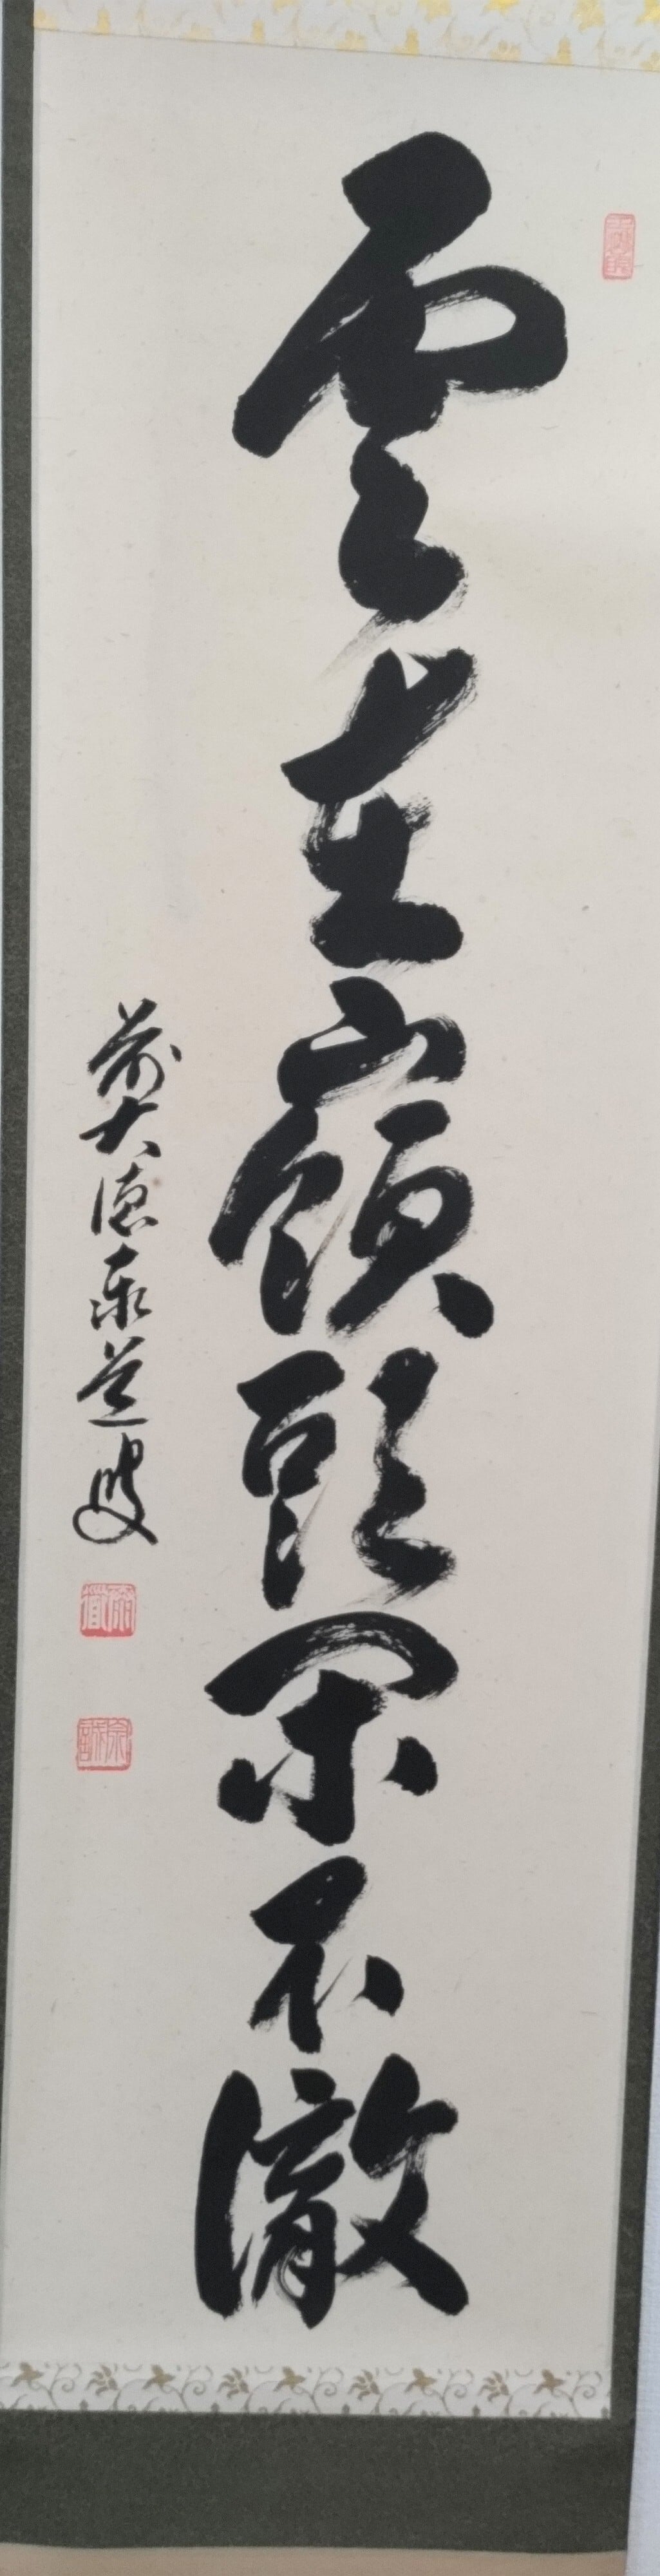 雲在嶺頭閑不徹
前大徳泰道叟